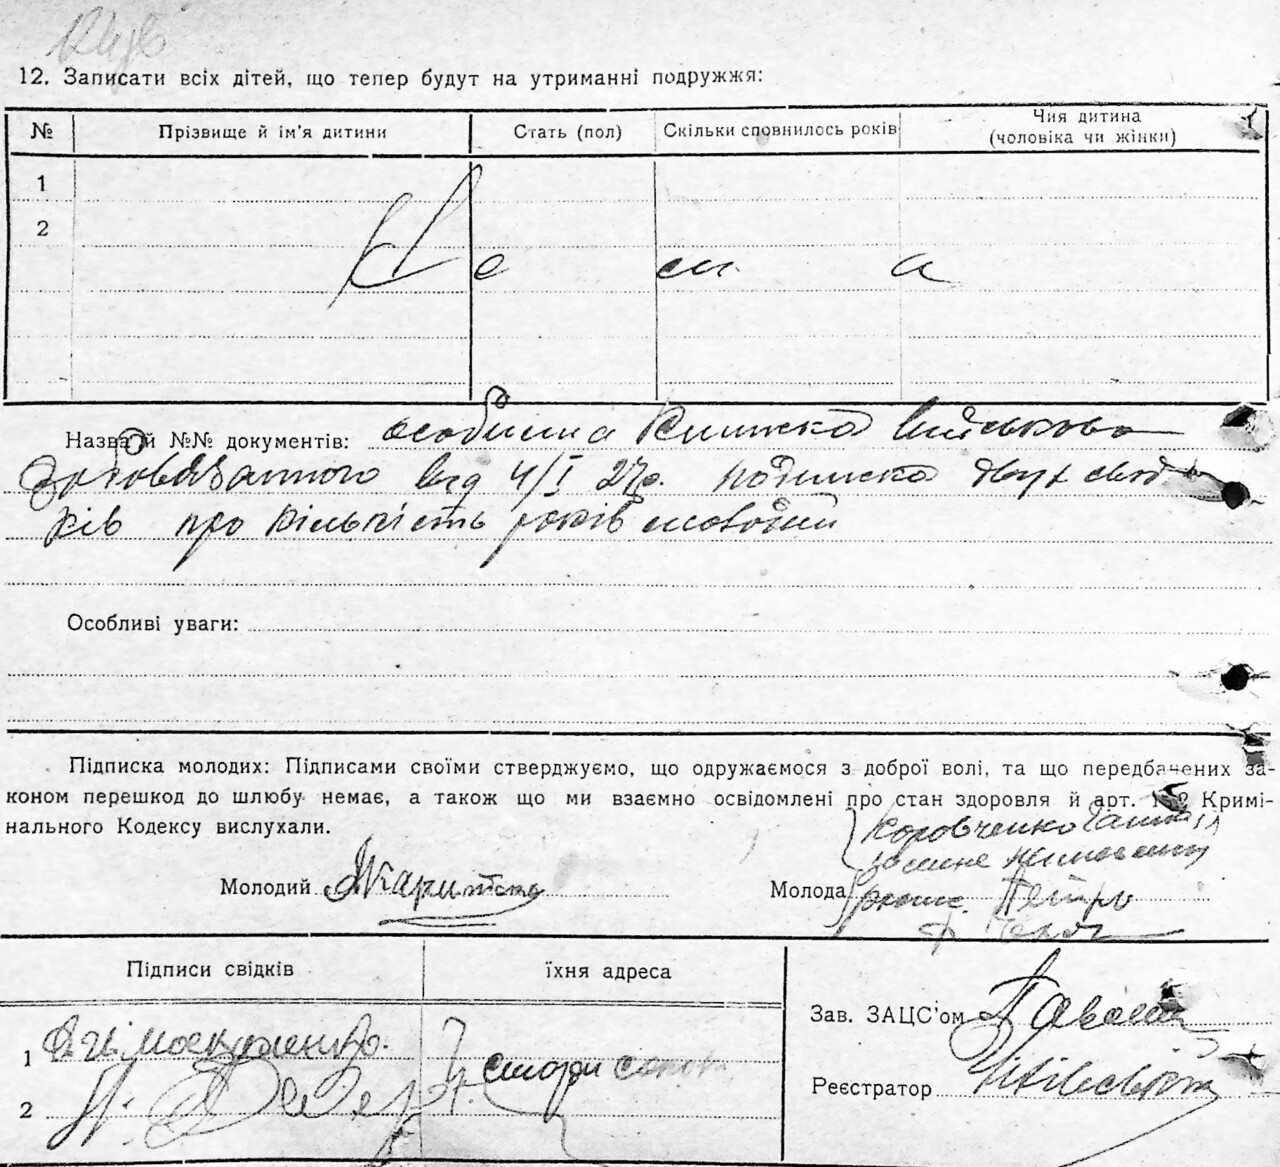 12. Записати всіх дітей, що тепер будут на утриманні подружжя:
№ Прізвище й ім'я дитини Стать (пол) Скільки сповнилось років Чия дитина (чоловіка чи жінки)
1
2
Нема
Назва й №№ документів: особиста Книжка Військово
зобовязанного від 4/I 27р. подписка двух свід
ків про кількість років молодіи
Особливі уваги:
Підписка молодих: Підписами своїми стверджуємо, що одружаємося з доброї волі, та що передбачених за-
коном перешкод до шлюбу немає, а також що ми взаємно освідомлені про стан здоровля й арт. 152 Кримі-
нального Кодексу вислухали.
Коровченко
Молодий Молода Петро
Підписи свідків їхня адреса
Зав. ЗАЦС'ом
1
Реєстратор
2